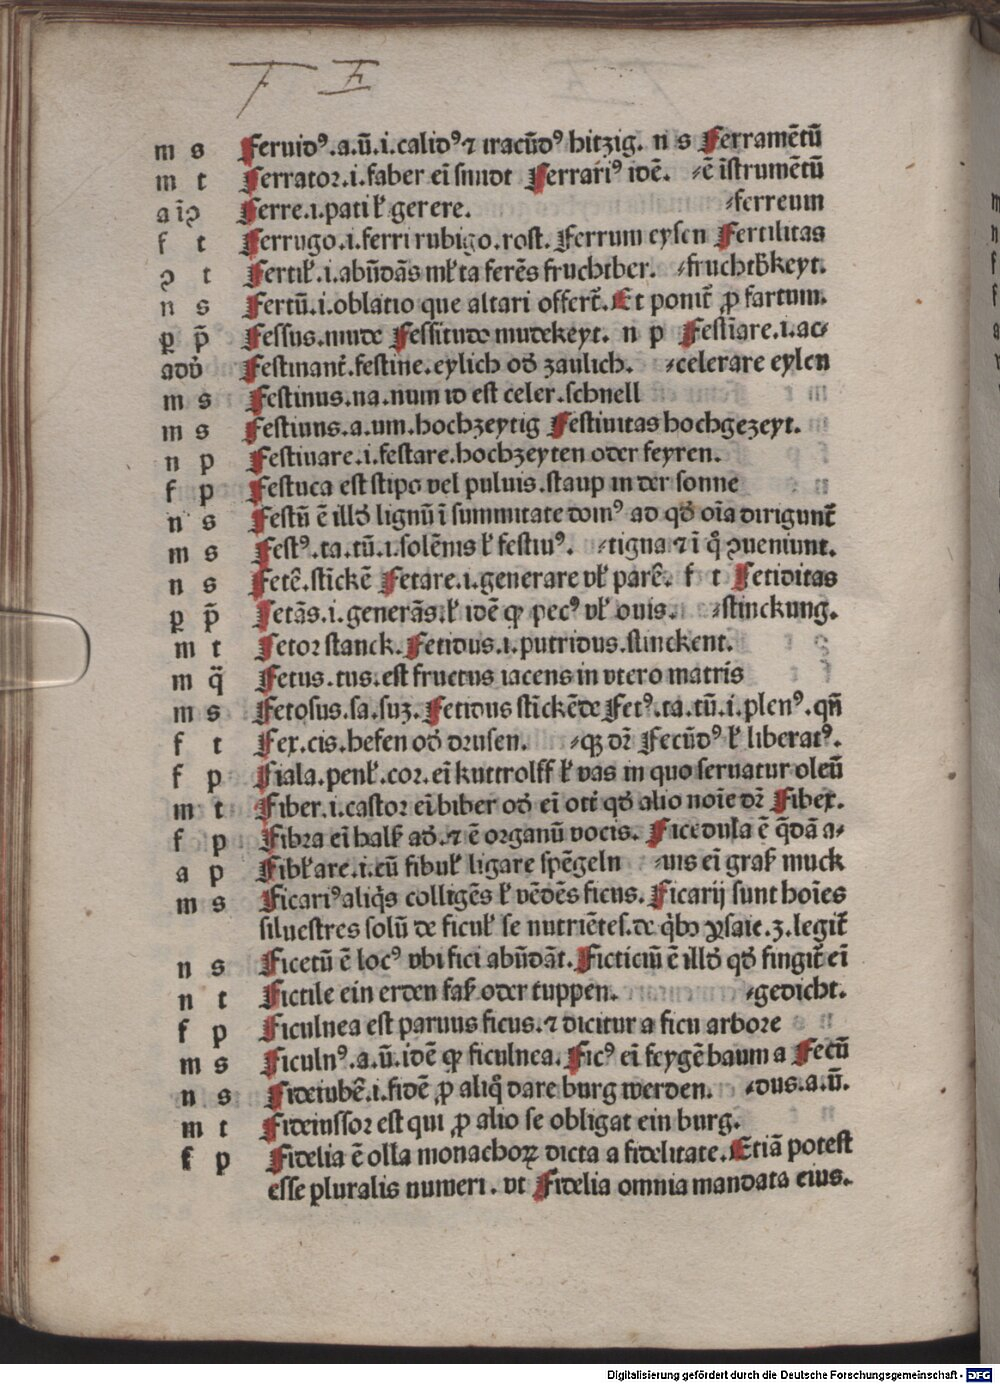 F E
m s Feruidꝰ.a.ū.i.calidꝰ ⁊ iracūdꝰ hitzig. n s Ferramētū
m t Ferrator.i.faber eī smidt Ferrariꝰ idē. ⸗ē īstrumētū
a īꝯ Ferre.i.pati ł gerere. ⸗ferreum
f t Ferrugo.i.ferri rubigo.rost. Ferrum eysen Fertilitas
ꝯ t Fertiƚ.i.abūdās mƚta ferēs fruchtber. ⸗fruchtb̄keyt.
n s Fertū.i.oblatio que altari offert̄. Et ponit̄ ꝓ fartum.
ꝑ p̄ Fessus.mude Fessitudo mudekeyt. n p Festiare.i.ac⸗
adv̄ Festinant̄.festine.eylich od̄ zaulich. ⸗celerare eylen
m s Festinus.na.num id est celer.schnell
m s Festiuus.a.um.hochzeytig Festiuitas hochgezeyt.
n p Festiuare.i.festare.hochzeyten oder feyren.
f p Festuca est stipo vel puluis.staup in der sonne
n s Festū ē illd̄ lignū ī summitate domꝰ ad qd̄ oīa dirigunt̄
m s Festꝰ.ta.tū.i.solēnis ł festiuꝰ. ⸗tigna ⁊ ī q̊ ꝯueniunt.
n s Fetē.stīckē Fetare.i.generare vƚ parē. f t Fetiditas
ꝑ p̄ Fetās.i.generās.ł idē qꝫ pecꝰ vƚ ouis. ⸗stinckung.
m t Fetor stanck. Fetidus.i.putridus.stinckent.
m q̄ Fetus.tus.est fructus iacens in vtero matris
m s Fetosus.sa.suꝫ. Fetidus stickēde Fetꝰ.ta.tū.i.plenꝰ.qn̄
f t Fex.cis.hefen od̄ drusen. ⸗qꝫ dr̄ Fecūdꝰ ł liberatꝰ.
f p Fiala.penƚ.cor.eī kuttrolff ł vas in quo seruatur oleū
m t Fiber.i.castor eī biber od̄ eī ott̄ qd̄ alio noīe dr̄ Fibex.
f p Fibra eī halƚ ad̄.⁊ ē organū vocis. Ficedula ē q̄dā a⸗
a p Fibƚare.i.cū fibuƚ ligare spēgeln ⸗uis eī graƚ muck
m s Ficariꝰ aliq̇s colligēs ł vēdēs ficus. Ficarij sunt hoīes
siluestres solū de ficuƚ se nutriētes.de q̇bꝫ ysaie.3.legit̄
n s Ficetū ē locꝰ vbi fici abūdāt. Ficticiū ē illd̄ qd̄ fingit̄ eī
n t Fictile ein erden faß oder tuppen. ⸗gedicht.
f p Ficulnea est paruus ficus.⁊ dicitur a ficu arbore
m s Ficulnꝰ.a.ū.idē qꝫ ficulnea. Ficꝰ eī feygē baum a Fecū
n s Fideiubē.i.fidē ꝓ aliq̊ dare burg werden. ⸗dus.a.ū.
m t Fideiussor est qui ꝓ alio se obligat ein burg.
f p Fidelia ē olla monachoꝝ dicta a fidelitate. Etiā potest
esse pluralis numeri. vt Fidelia omnia mandata eius.
Digitalisierung gefördert durch die Deutsche Forschungsgemeinschaft - DFG